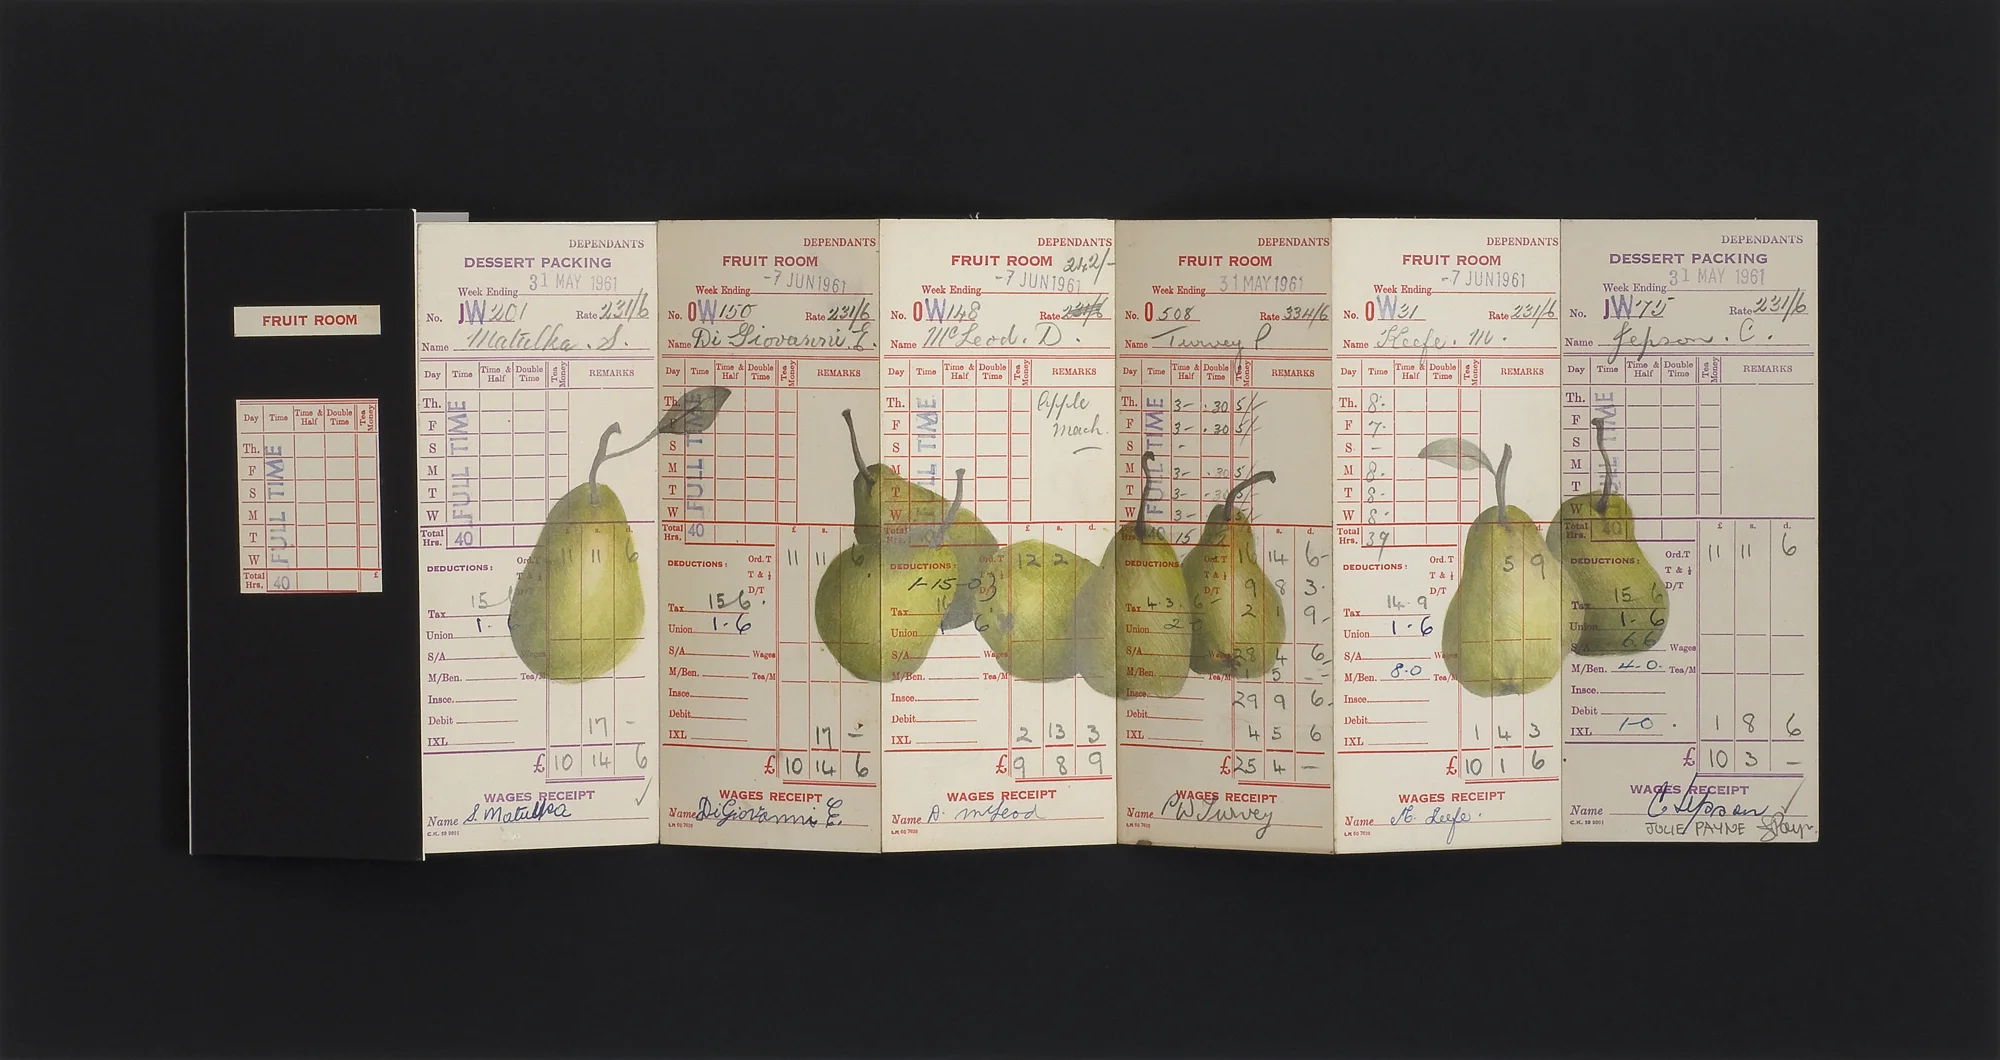 FRUIT ROOM
Day Time Time & Half Double Time Tea Money
Th.
F
S
M
T
W
FULL TIME
Total Hrs. 40 £
DEPENDANTS
DESSERT PACKING
Week Ending 31 MAY 1961
No. JW 201 Rate 231/6
Name Matulka. S.
Day Time Time & Half Double Time Tea Money REMARKS
Th.
F
S
M
T
W
FULL TIME
Total Hrs. 40 £ s. d.
Ord.T 11 11 6
DEDUCTIONS:
T & ½
D/T
Tax 15
Union 1.
S/A Wages
M/Ben. Tea/M
Insce.
Debit 17 -
IXL
£ 10 14 6
WAGES RECEIPT
Name S. Matulka
DEPENDANTS
FRUIT ROOM
Week Ending -7 JUN 1961
No. OW 150 Rate 231/6
Name Di Giovanni. E.
Day Time Time & Half Double Time Tea Money REMARKS
Th.
F
S
M
T
W
FULL TIME
Total Hrs. 40 £ s. d.
Ord.T 11 11 6
DEDUCTIONS:
T & ½
D/T
Tax 15 6.
Union 1-6
S/A Wages
M/Ben. Tea/M
Insce.
Debit
IXL 17 -
£ 10 14 6
WAGES RECEIPT
Name DiGiovanni E.
DEPENDANTS
FRUIT ROOM 242/-
Week Ending -7 JUN 1961
No. OW 148 Rate 231/6
Name McLeod. D.
Day Time Time & Half Double Time Tea Money REMARKS
Th. Apple
F Mach.
S
M
T
W
FULL TIME
Total Hrs. £ s. d.
Ord.T 12 2
DEDUCTIONS:
T & ½
1-15-0 D/T
Tax
Union 1 6
S/A Wages
M/Ben. Tea/M
Insce.
Debit
IXL 2 13 3
£ 9 8 9
WAGES RECEIPT
Name D. McLeod
DEPENDANTS
FRUIT ROOM
Week Ending 31 MAY 1961
No. O 508 Rate 334/6
Name Turvey P
Day Time Time & Half Double Time Tea Money REMARKS
Th. 3- .30 5/-
F 3- .30 5/-
S -
M 3- .30 5/-
T 3- .30 5/-
W 3- 5/-
FULL TIME
Total Hrs. 40 15 £ s. d.
Ord.T 16 14 6-
DEDUCTIONS:
T & ½ 9 8 3.
D/T 2 1 9-
Tax 4.3.6
Union
S/A Wages 28 4 6-
M/Ben. Tea/M 1 5 -
Insce. 29 9 6-
Debit
IXL 4 5 6
£ 25 4 -
WAGES RECEIPT
Name P W Turvey
DEPENDANTS
FRUIT ROOM
Week Ending -7 JUN 1961
No. OW 31 Rate 231/6
Name Keefe. M.
Day Time Time & Half Double Time Tea Money REMARKS
Th. 8-
F 7-
S -
M 8-
T 8-
W 8-
Total Hrs. 39 d.
Ord.T 5 9
DEDUCTIONS:
T & ½
D/T
Tax 14.9
Union 1.6
S/A Wages
M/Ben. 8.0 Tea/M
Insce.
Debit
IXL 1 4 3
£ 10 1 6
WAGES RECEIPT
Name M. Keefe.
DEPENDANTS
DESSERT PACKING
Week Ending 31 MAY 1961
No. JW 75 Rate 231/6
Name Jepson. C.
Day Time Time & Half Double Time Tea Money REMARKS
Th.
F
S
M
T
W
FULL TIME
Total Hrs. 40 £ s. d.
Ord.T 11 11 6
DEDUCTIONS:
T & ½
D/T
Tax 15 6
Union 1-6
S/A 6.6 Wages
M/Ben. 4-0. Tea/M
Insce.
Debit
IXL 1-0 . 1 8 6
£ 10 3 -
WAGES RECEIPT
Name C Jepson
JULIE PAYNE